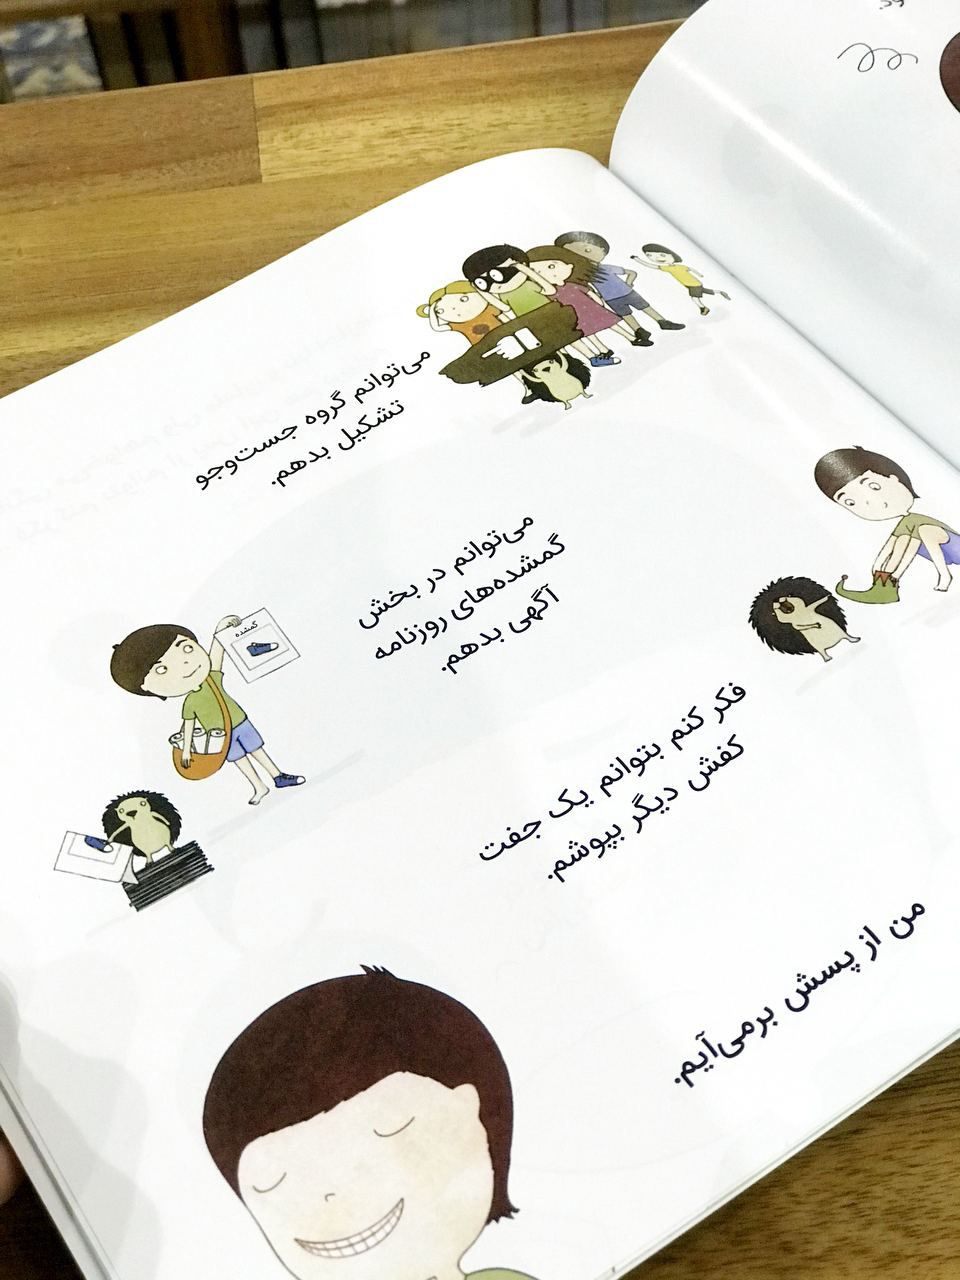 می‌توانم گروه جست‌وجو
تشکیل بدهم.
می‌توانم در بخش
گمشده‌های روزنامه
آگهی بدهم.
گمشده
فکر کنم بتوانم یک جفت
کفش دیگر بپوشم.
من از پسش برمی‌آیم.